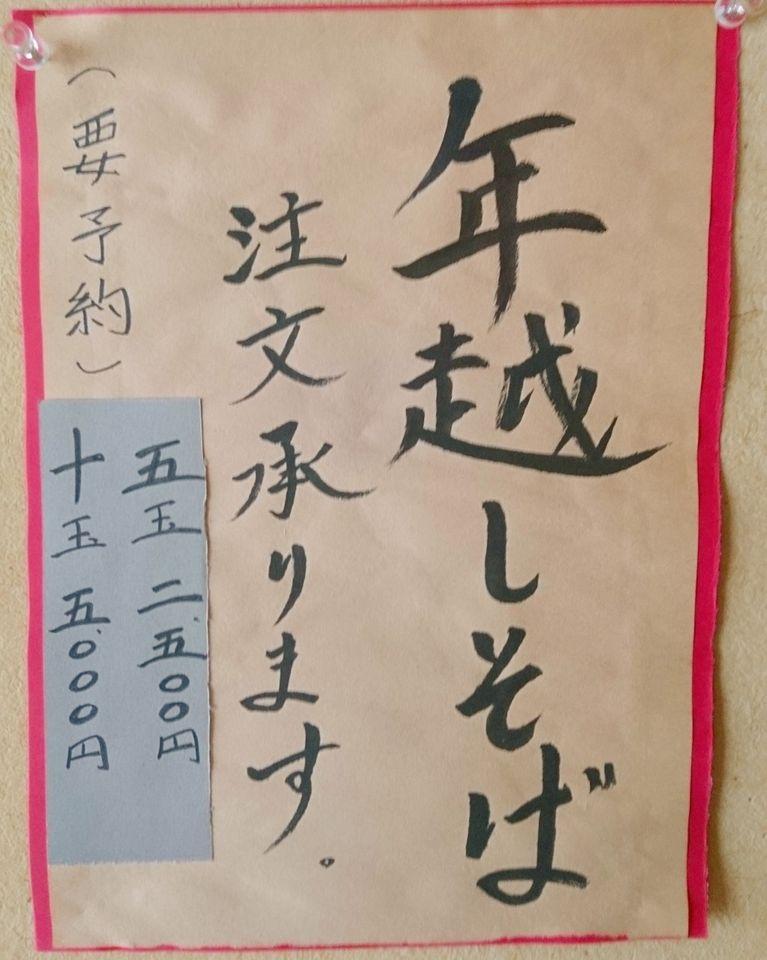 年越しそば
注文承ります。
(要予約)
五玉 二、五〇〇円
十玉 五、〇〇〇円